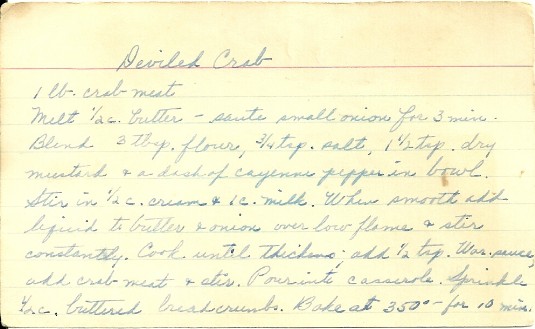 Deviled Crab
1 lb. crab meat
Melt 1/2 c. butter - saute small onion for 3 min.
Blend 3 tbsp. flour, 3/4 tsp. salt, 1 1/2 tsp. dry
mustard & a dash of cayenne pepper in bowl.
Stir in 1/2 c. cream & 1 c. milk. When smooth add
liquid to butter & onion over low flame & stir
constantly. Cook until thickens; add 1/2 tsp. Wor. sauce,
add crab meat & stir. Pour into casserole. Sprinkle
1/2 c. buttered breadcrumbs. Bake at 350° - for 10 min.